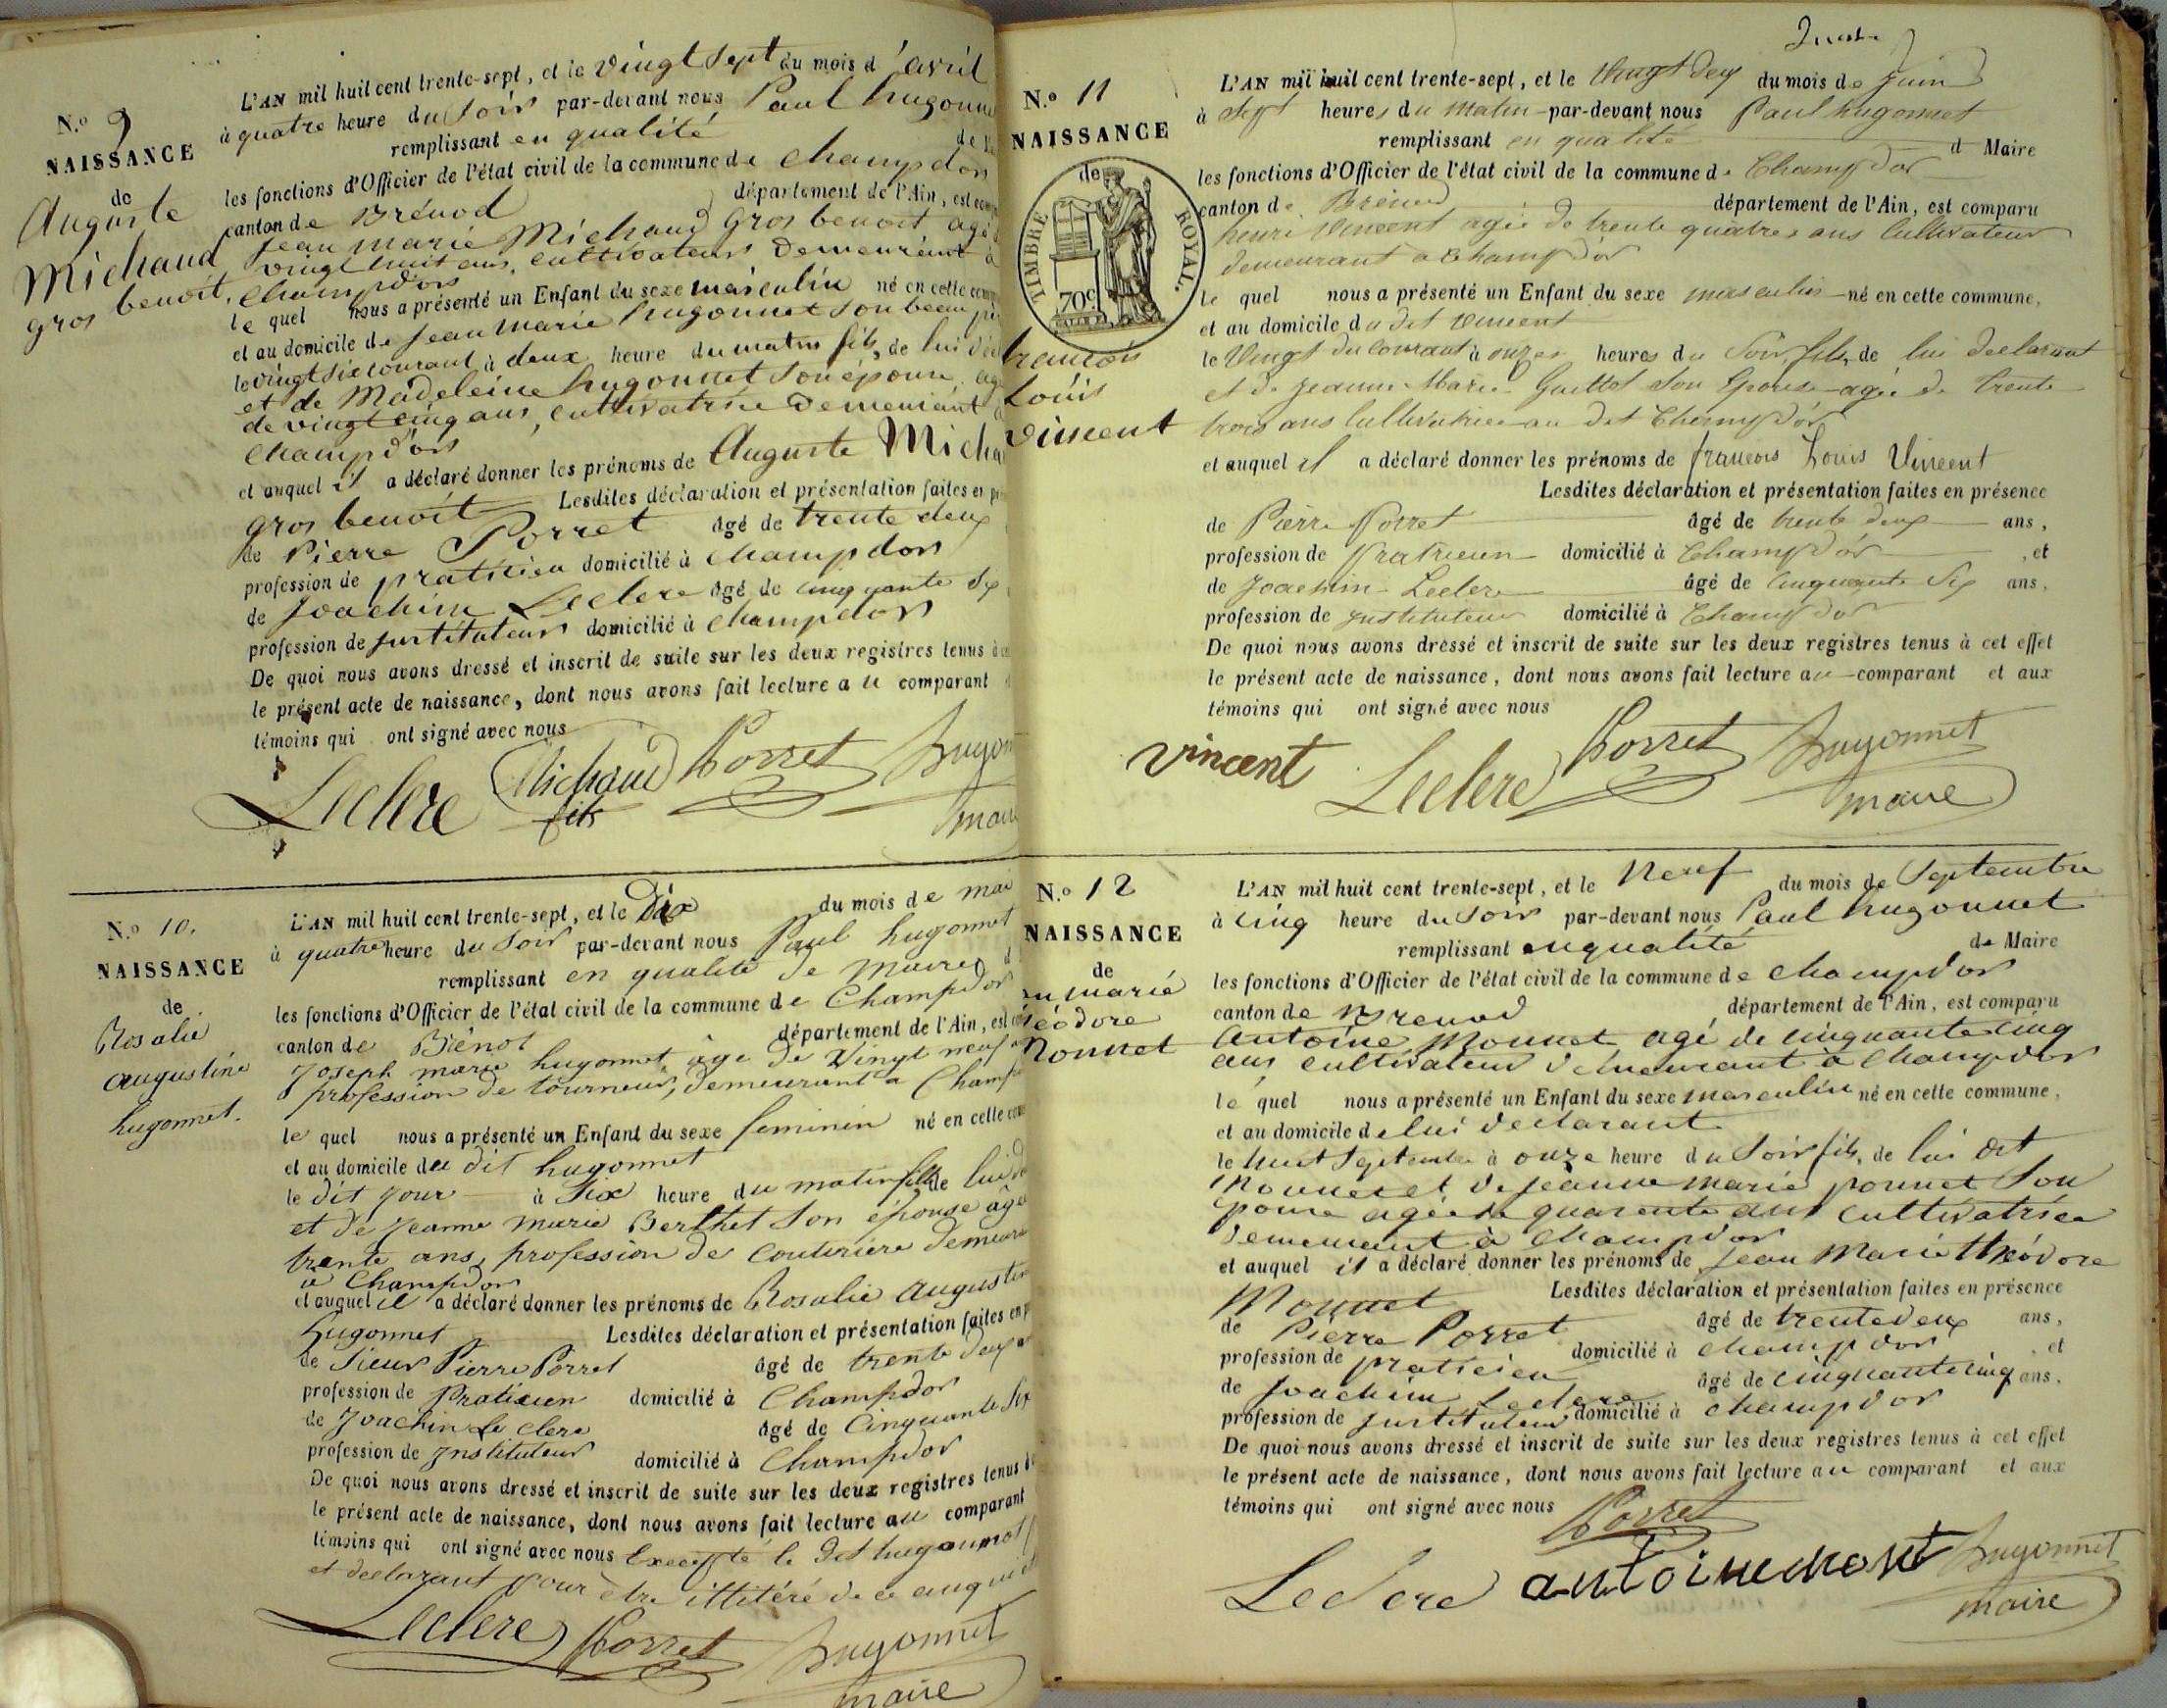 N.º 9
NAISSANCE
de
Auguste
Michaud
gros benoit.
L'AN mil huit cent trente-sept, et le vingt sept du mois d'avril
à quatre heure du soir par-devant nous Paul hugonne
remplissant en qualité de
les fonctions d'Officier de l'état civil de la commune de Champdor
canton de Brénod département de l'Ain, est
jean marie Michaud gros benoit agé
vingt huit ans, cultivateur demeurant à
Champdor
le quel nous a présenté un Enfant du sexe masculin né en cette
et au domicile de jean marie hugonnet son beau
le vingt six courant à deux heure du matin fils, de lui
et de Madeleine hugonnet son épouse
de vingt cinq ans, cultivatrice demeurant
Champd'or
et auquel il a déclaré donner les prénoms de Auguste Micha
gros benoit Lesdites déclaration et présentation faites en
de Pierre Porret âgé de trente deux
profession de praticien domicilié à Champdor
de Joachim Leclerc âgé de cinquante six
profession de justituteur domicilié à Champdor
De quoi nous avons dressé et inscrit de suite sur les deux registres tenus à
le présent acte de naissance, dont nous avons fait lecture au comparant
témoins qui ont signé avec nous
Leclerc Michaud fils Porret hugon
mair
N.º 10.
NAISSANCE
de
Rosalie
augustine
hugonnet.
L'AN mil huit cent trente-sept, et le Dix du mois de mai
à quatre heure du soir par-devant nous Paul hugonnet
remplissant en qualité de maire
les fonctions d'Officier de l'état civil de la commune de Champdor
canton de Brénot département de l'Ain, est
Joseph marie hugonnet, âgé de vingt neuf
profession de tourneur, demeurant à Champ
le quel nous a présenté un Enfant du sexe feminin né en cette
et au domicile du dit hugonnet
le dit jour à Six heure du matin fille de lui
et de jeanne marie Berthet son épouse âgé
trente ans, profession de couturière demeura
à Champdor
et auquel il a déclaré donner les prénoms de Rosalie Augustin
hugonnet Lesdites déclaration et présentation faites en
de sieur Pierre Porret âgé de trente deux
profession de Praticien domicilié à Champdor
de Joachin Le clerc âgé de Cinquante Six
profession de Instituteur domicilié à Champdor
De quoi nous avons dressé et inscrit de suite sur les deux registres tenus
le présent acte de naissance, dont nous avons fait lecture au comparant
témoins qui ont signé avec nous Excepté le dit hugonnet
et declarant pour être illitéré de ce enquis
Leclerc Porret hugonnet
maire
N.º 11
NAISSANCE
de
TIMBRE ROYAL.
70c
francois
Loüis
vincent
L'AN mil huit cent trente-sept, et le Vingt deux du mois de juin
à Sept heures du matin par-devant nous Paul hugonnet
remplissant en qualité d Maire
les fonctions d'Officier de l'état civil de la commune de Champd'or
canton de Brénod département de l'Ain, est comparu
henri Vincent agée de trente quatre ans Cultivateur
demeurant a Champd'or
le quel nous a présenté un Enfant du sexe masculin né en cette commune,
et au domicile du dit Vincent
le Vingt du courant à onze heures du Soir fils, de lui declarant
et de jeanne Marie Guillot son Epouse agée de trente
trois ans Cultivatrice au dit Champd'or
et auquel il a déclaré donner les prénoms de francois Louis Vincent
Lesdites déclaration et présentation faites en présence
de Pierre Porret âgé de trente deux ans,
profession de Praticien domicilié à Champd'or , et
de Joachim Leclerc âgé de Cinquante Six ans,
profession de instituteur domicilié à Champdor
De quoi nous avons dressé et inscrit de suite sur les deux registres tenus à cet effet
le présent acte de naissance, dont nous avons fait lecture au comparant et aux
témoins qui ont signé avec nous
vincent Leclerc Porret hugonnet
maire
N.º 12
NAISSANCE
de
marie
éodore
Monnet
L'AN mil huit cent trente-sept, et le Neuf du mois de Septembre
à cinq heure du soir par-devant nous Paul hugonnet
remplissant en qualité de Maire
les fonctions d'Officier de l'état civil de la commune de Champdor
canton de Brenod département de l'Ain, est comparu
Antoine Monnet agé de cinquante cinq
ans cultivateur demeurant à Champdor
le quel nous a présenté un Enfant du sexe masculin né en cette commune,
et au domicile de lui declarant
le huit Septembre à onze heure du Soir fils, de lui dit
Monnet et de jeanne marie ponnet Son
épouse agée de quarente ans cultivatrice
demeurant à Champdor
et auquel il a déclaré donner les prénoms de jean Marie théodore
Monnet Lesdites déclaration et présentation faites en présence
de Pierre Porret âgé de trente deux ans,
profession de praticien domicilié à Champdor , et
de Joachim Leclerc âgé de cinquante cinq ans,
profession de justituteur domicilié à Champdor
De quoi nous avons dressé et inscrit de suite sur les deux registres tenus à cet effet
le présent acte de naissance, dont nous avons fait lecture au comparant et aux
témoins qui ont signé avec nous
Porret
Leclerc antoine monet hugonnet
maire